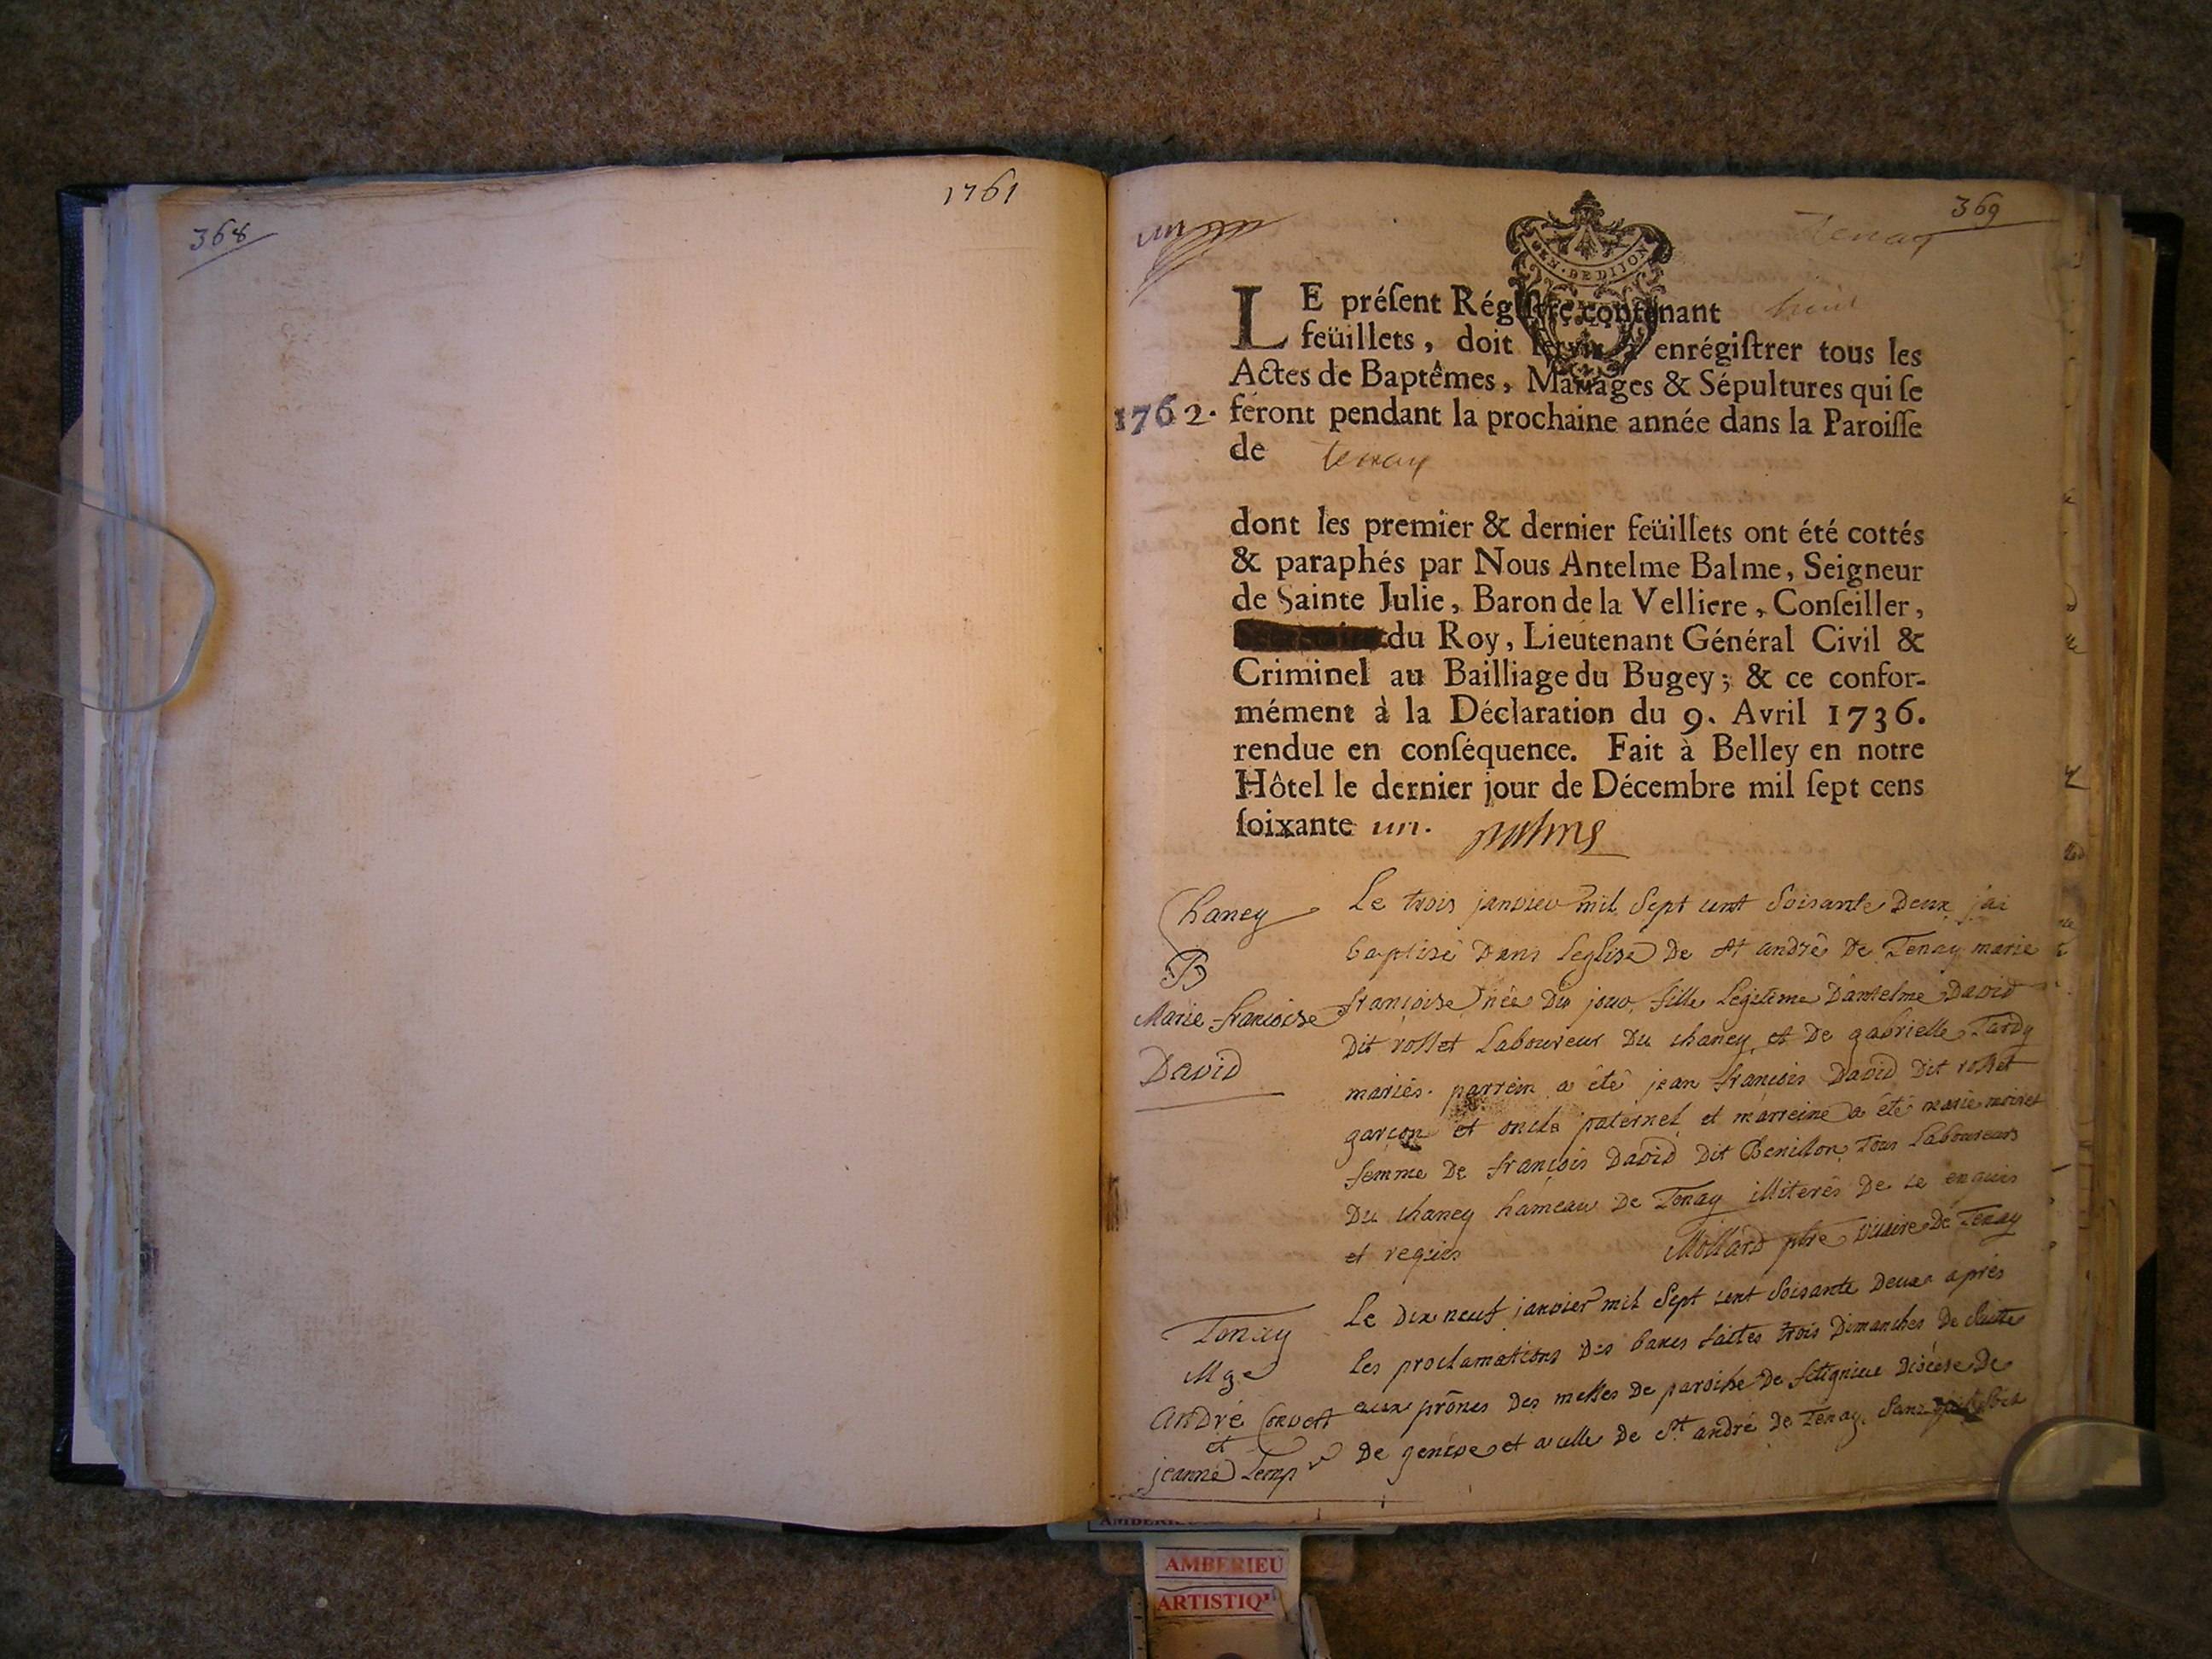 368
1761
un
369
Tenay
GEN. DE DIJON
LE préſent Régiſtre contenant huit
feüillets, doit ſervir à enrégiſtrer tous les
Actes de Baptêmes, Mariages & Sépultures qui ſe
1762. feront pendant la prochaine année dans la Paroiſſe
de tenay
dont les premier & dernier feüillets ont été cottés
& paraphés par Nous Antelme Balme, Seigneur
de Sainte Julie, Baron de la Velliere, Conſeiller,
du Roy, Lieutenant Général Civil &
Criminel au Bailliage du Bugey; & ce confor-
mément à la Déclaration du 9. Avril 1736.
rendue en conſéquence. Fait à Belley en notre
Hôtel le dernier jour de Décembre mil ſept cens
ſoixante un. Balme
Chaney
B
Marie francoise
David
Le trois janvier mil sept cent soisante deux j'ai
baptisé dans leglise de st andré de Tenay marie
francoise née du jour, fille legitime dantelme david
dit rosset laboureur du chaney et de gabrielle Tardy
mariés. parrein a été jean francois david dit rosset
garcon et oncle paternel et marreine a été marie
femme de françois david dit Benillon Tous laboureurs
du chaney hameau de Tenay illiterés de ce enquis
et requis Mollard ptre vicaire de Tenay
Tenay
Mge
andré Corvet
et
jeanne Temp
Le dix neuf janvier mil sept cent soisante deux après
les proclamations des bancs faites trois dimanches de suitte
aux prônes des messes de paroisse de diocèse de
de genève et a celle de St andré de Tenay sans
AMBERIEU
ARTISTIQ